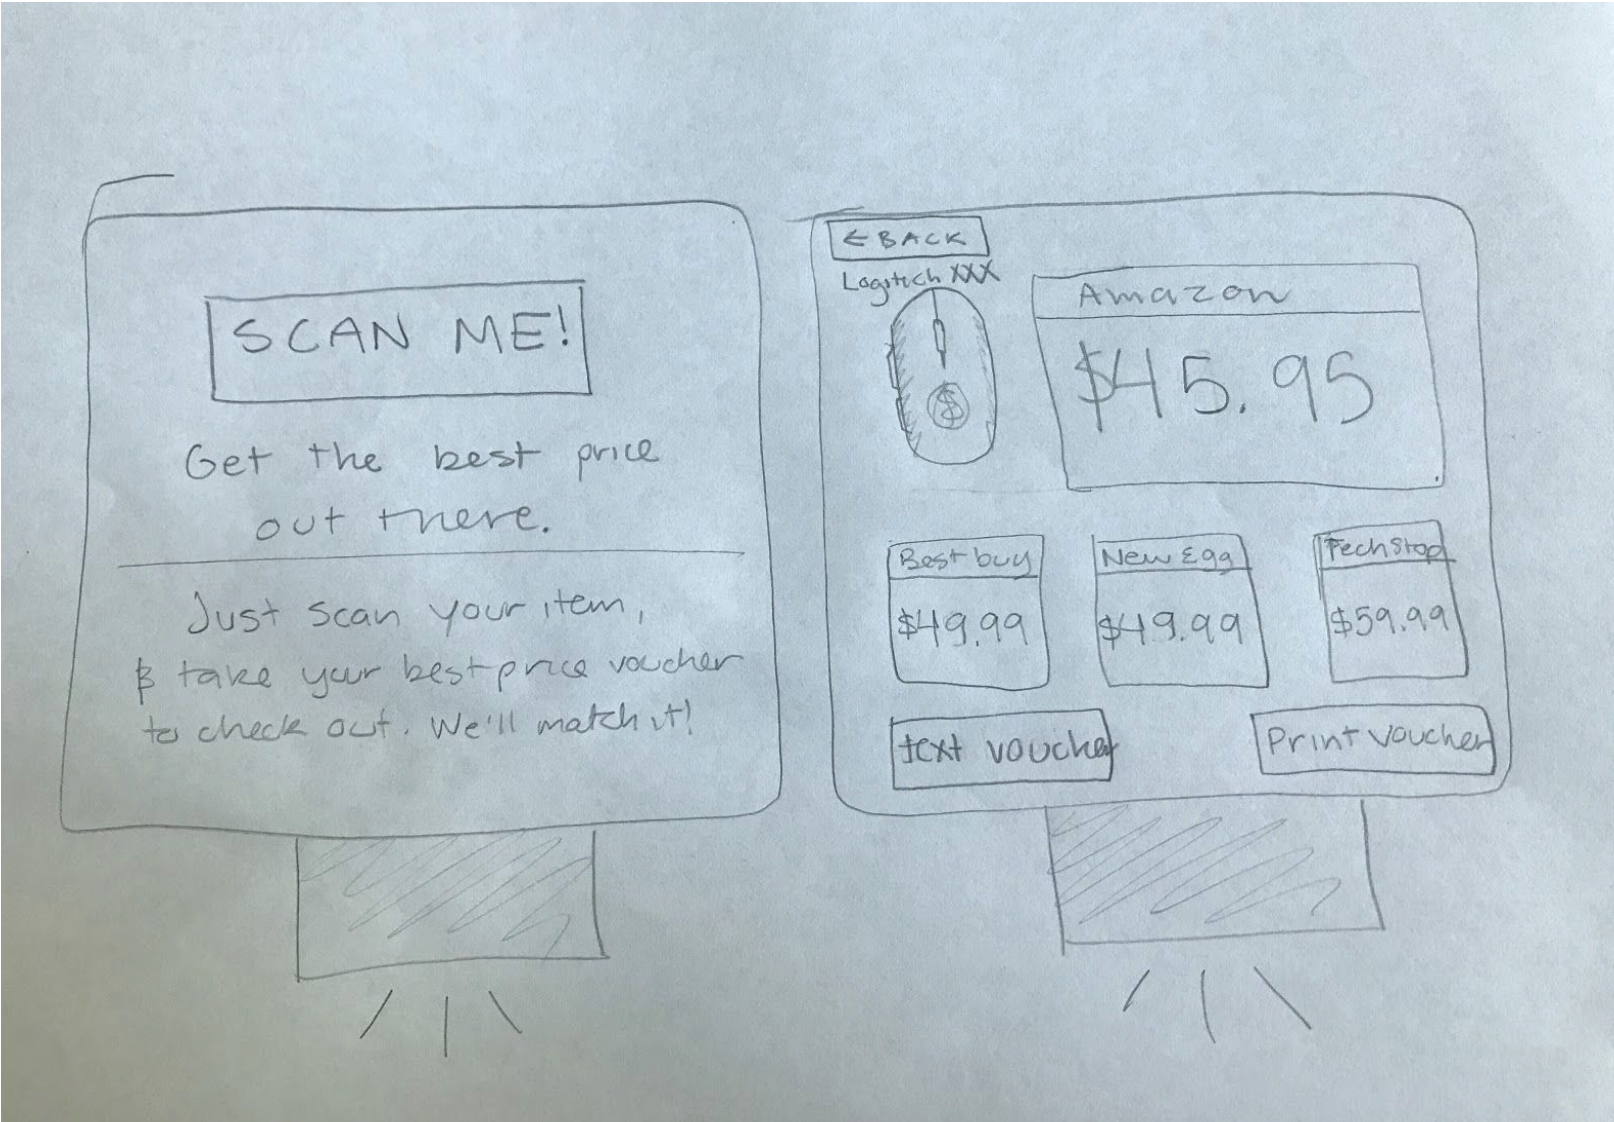 SCAN ME!
Get the best price
out there.
Just scan your item,
& take your best price voucher
to check out. We'll match it!
← BACK
Logitech XXX
$
Amazon
$45.95
Best buy
$49.99
New Egg
$49.99
TechStop
$59.99
text voucher
Print voucher